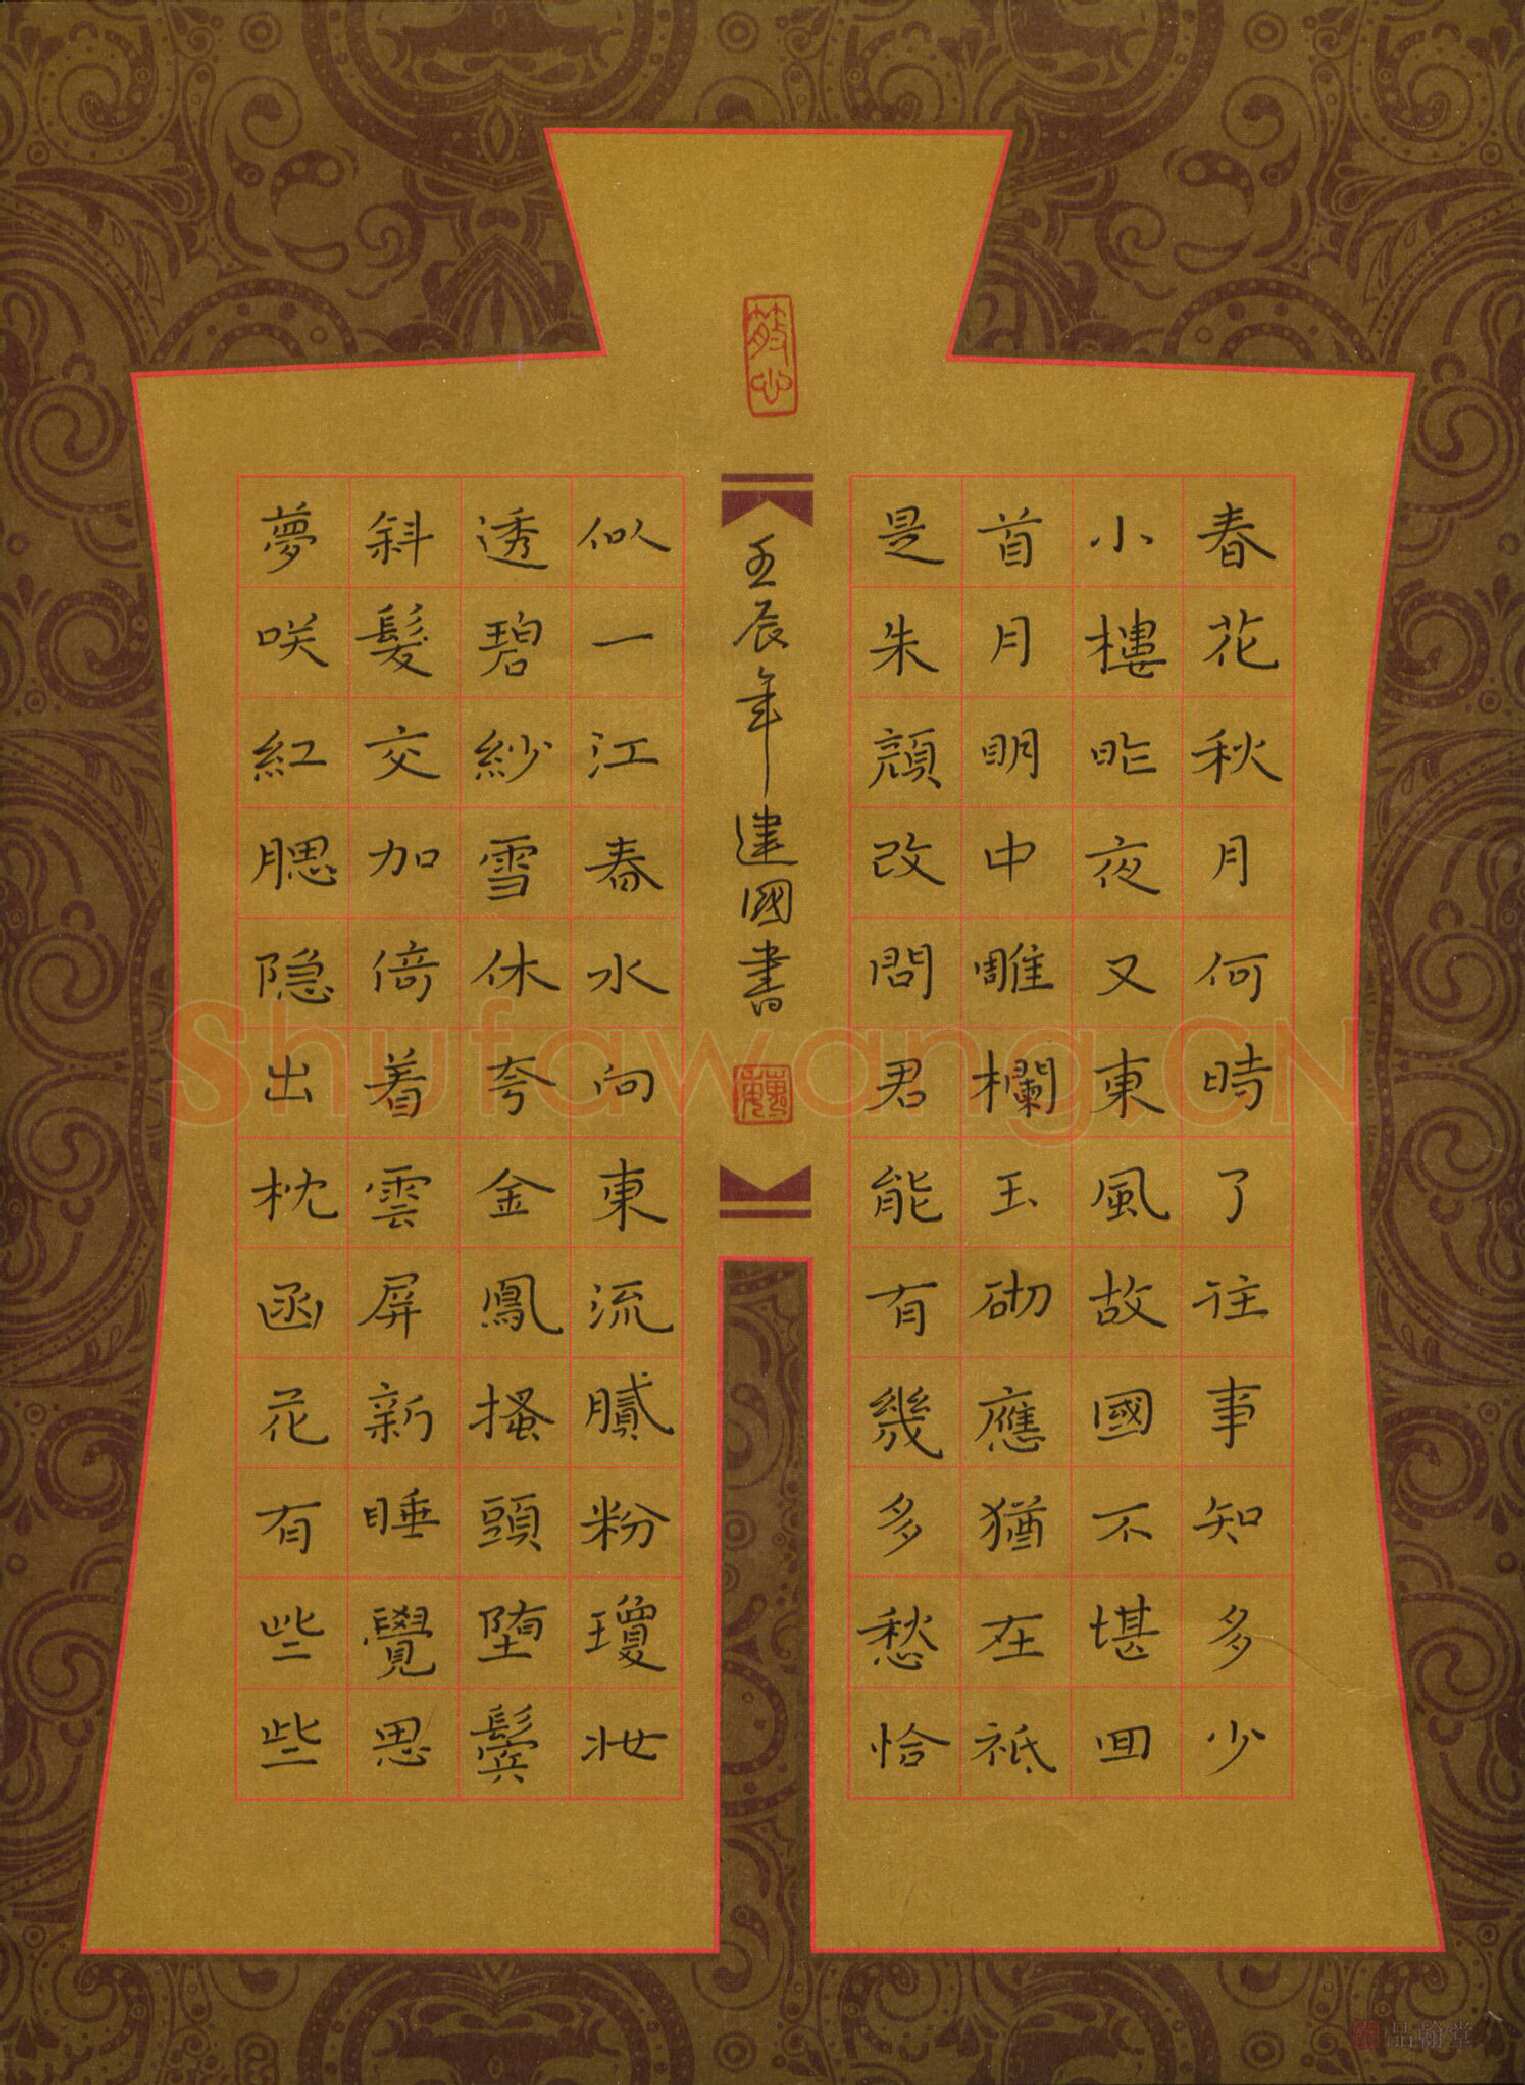 春花秋月何時了往事知多少
小樓昨夜又東風故國不堪回
首月明中雕欄玉砌應猶在祗
是朱顔改問君能有幾多愁恰
壬辰年建國書
似一江春水向東流膩粉瓊妝
透碧紗雪休夸金鳳搔頭堕鬢
斜髮交加倚着雲屏新睡覺思
夢咲紅腮隐出枕函花有些些
Shufawang.CN
品翰堂